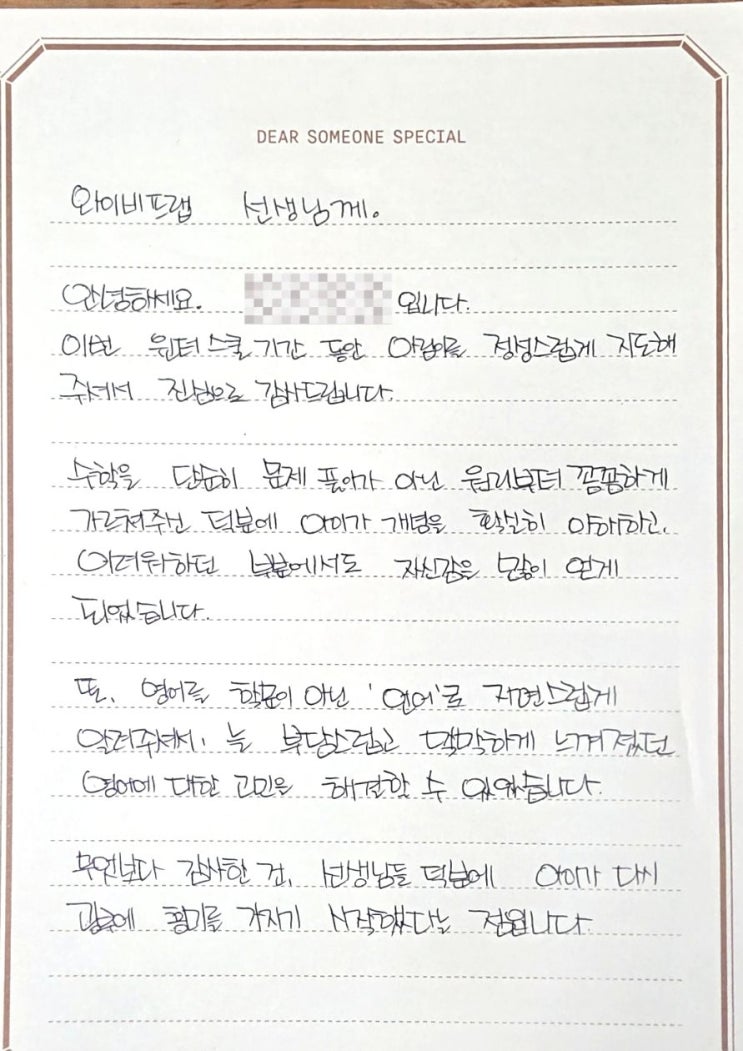 DEAR SOMEONE SPECIAL
와이비프랩 선생님께.
안녕하세요. 입니다.
이번 윈터스쿨 기간 동안 아이를 정성스럽게 지도해
주셔서 진심으로 감사드립니다.
수학을 단순히 문제 풀이가 아닌 원리부터 꼼꼼하게
가르쳐주신 덕분에 아이가 개념을 확실히 이해하고,
어려워하던 부분에서도 자신감을 많이 얻게
되었습니다.
또, 영어를 학문이 아닌 '언어'로 자연스럽게
알려주셔서, 늘 부담스럽고 막막하게 느껴졌던
영어에 대한 고민을 해결할 수 있었습니다.
무엇보다 감사한 건, 선생님들 덕분에 아이가 다시
공부에 흥미를 가지기 시작했다는 점입니다.